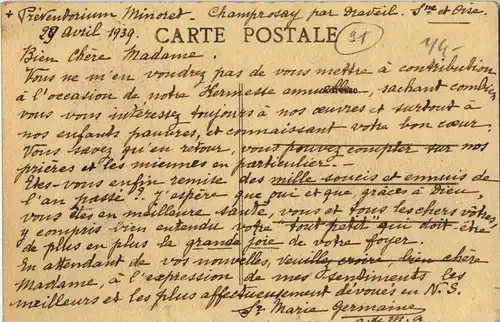 + Préventorium Minoret - Champrosay par Draveil. S.ne et Oise
29 Avril 1939.
CARTE POSTALE
91
Bien Chère Madame.
Vous ne m'en voudrez pas de vous mettre à contribution
à l'occasion de notre Kermesse annuelle, sachant combien
vous vous intéressez toujours à nos œuvres et surtout à
nos enfants pauvres, et connaissant votre bon cœur.
Vous savez qu'en retour, vous pouvez compter sur nos
prières et les miennes en particulier. -
Etes-vous enfin remise des mille soucis et ennuis de
l'an passé ? J'espère que oui et que, grâces à Dieu,
vous êtes en meilleure santé, vous et tous les chers vôtres,
y compris bien entendu votre tout petit qui doit être
de plus en plus la grande joie de votre foyer.
En attendant de vos nouvelles, veuillez croire bien chère
Madame, à l'expression de mes sentiments les
meilleurs et les plus affectueusement dévoués en N.S.
Sr Marie Germaine